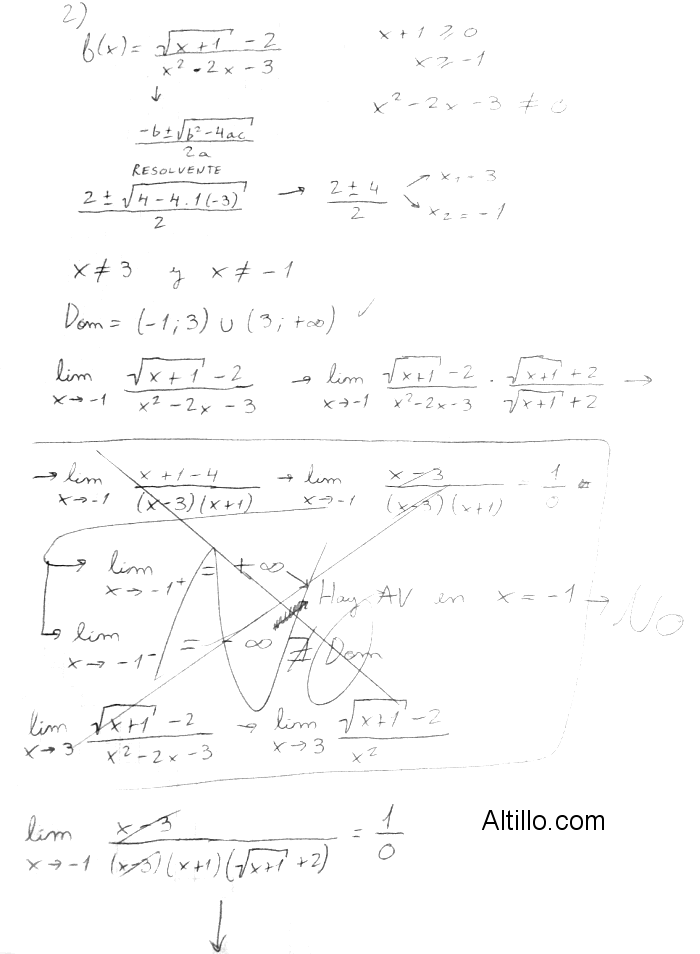 2)
f(x) = √(x+1) - 2 / x² - 2x - 3
x + 1 ≥ 0
x ≥ -1
x² - 2x - 3 ≠ 0
↓
-b ± √(b² - 4ac) / 2a
RESOLVENTE
2 ± √(4 - 4.1(-3)) / 2 → 2 ± 4 / 2
x₁ = 3
x₂ = -1
x ≠ 3 y x ≠ -1
Dom = (-1; 3) ∪ (3; +∞) ✓
lim x→-1 √(x+1) - 2 / x² - 2x - 3 → lim x→-1 √(x+1) - 2 / x² - 2x - 3 . √(x+1) + 2 / √(x+1) + 2 →
→ lim x→-1 x + 1 - 4 / (x-3)(x+1) → lim x→-1 x - 3 / (x-3)(x+1) = 1/0
lim x→-1⁺ = +∞
Hay AV en x = -1 → No
lim x→-1⁻ = -∞ ∄ Dom
lim x→3 √(x+1) - 2 / x² - 2x - 3 → lim x→3 √(x+1) - 2 / x²
Altillo.com
lim x→-1 x - 3 / (x-3)(x+1)(√(x+1) + 2) = 1/0
↓